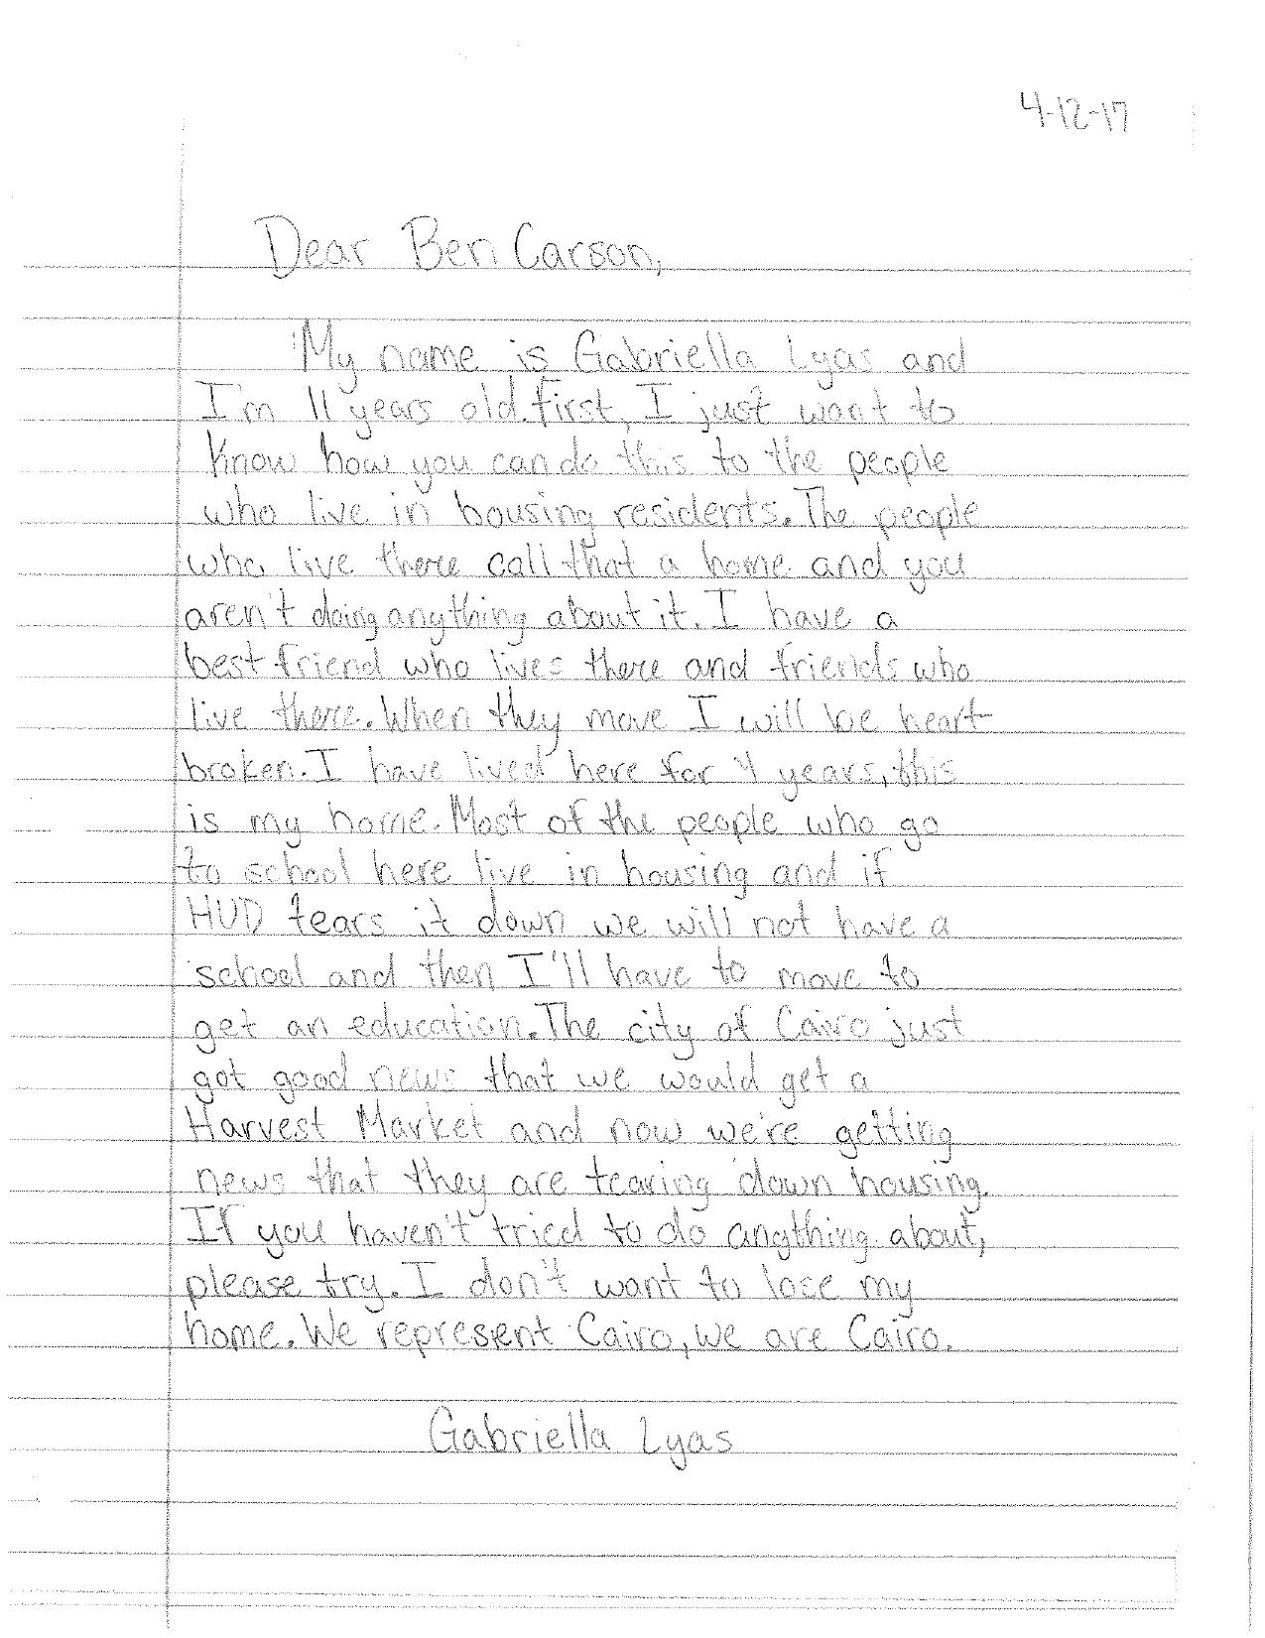 4-12-17
Dear Ben Carson,
My name is Gabriella Lyas and
I'm 11 years old. First, I just want to
know how you can do this to the people
who live in housing residents. The people
who live there call that a home and you
aren't doing anything about it. I have a
best friend who lives there and friends who
live there. When they move I will be heart
broken. I have lived here for 4 years, this
is my home. Most of the people who go
to school here live in housing and if
HUD tears it down we will not have a
school and then I'll have to move to
get an education. The city of Cairo just
got good news that we would get a
Harvest Market and now we're getting
news that they are tearing down housing.
If you haven't tried to do anything about,
please try. I don't want to lose my
home. We represent Cairo, we are Cairo.
Gabriella Lyas